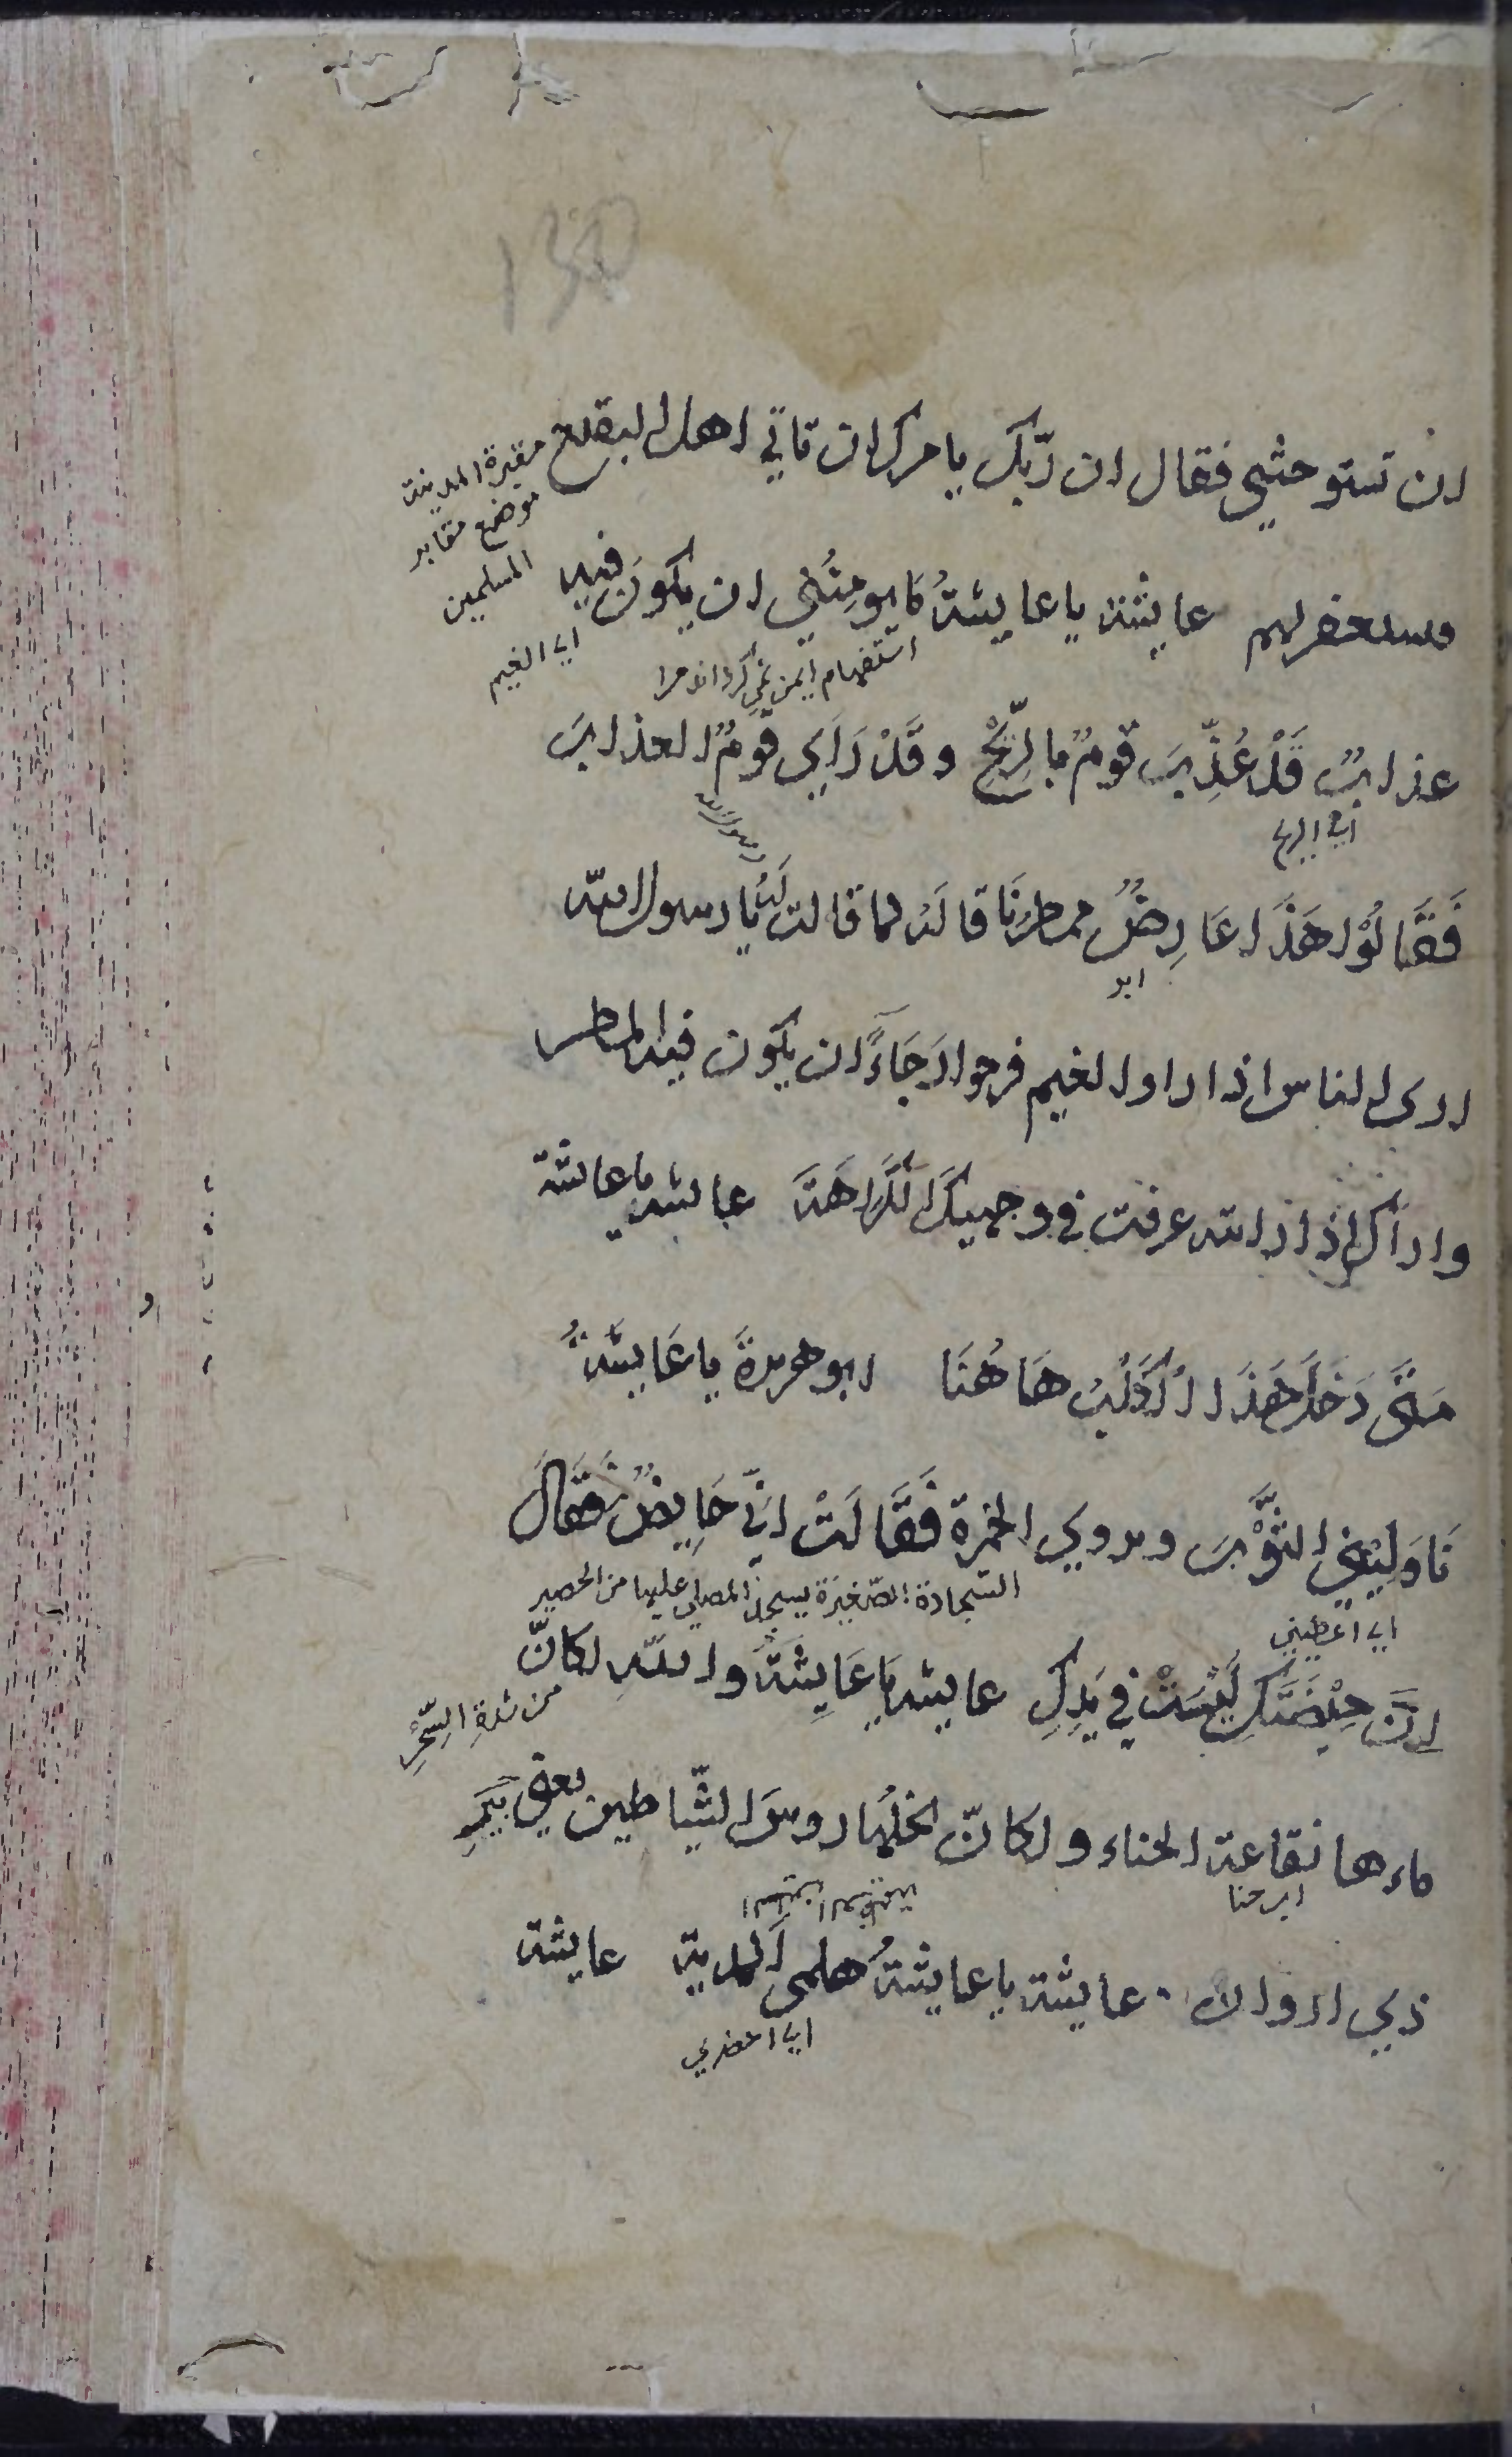 ان تستوحشي فقال ان ربّك يامرك ان تاتي اهل البقيع
مقبرة المدينة
موضع مقابر
المسلمين
وستغفر لهم عايشة يا عايشةُ مايومِنُني ان يكونَ فيه
اي الغيم
استفهام ايمن نمي كرداند مرا
عذابٌ قَدْ عُذِّبَ قومٌ بالرِّيْحِ وقَدْ رَاَي قومٌ العذابَ
اي الريح
فَقَالُوْا هَذَا عَارِضٌ ممطرُنَا قالَهُ لما قالت لَهُ يا رسول الله
ابر
اري الناس اذا راوا الغيم فرحوا رَجَاءً ان يكون فيه المطر
واراك اذا رايته عرفت في وجهيكَ الكَرَاهَةَ عايشه يا عايشة
مَتَى دَخَلَ هَذَا الْكَلْبُ هَاهُنَا ابو هريرةَ يا عَايِشَةُ
نَاوِلِيْنِي الثَّوْبَ ويروي الخمرة فَقَالَتْ انّي حَايِضٌ فَقَالَ
اي اعطيني
السجادة الصّغيرَة يسجد المصلي عليها من الحصير
اِنَّ حِيْضَتَكِ لَيْسَتْ فِي يَدِكِ عايشه يَا عَايِشَةُ واللّهِ لكانّ
من شدةِ السِّحْرِ
ماءها نقاعة الحناء ولكانّ نخلها روسُ الشّياطين يعني بيرِ
ابر حنا
ذي اروان عايشة يا عايشةُ هلمي المدية عايشة
اي احضري